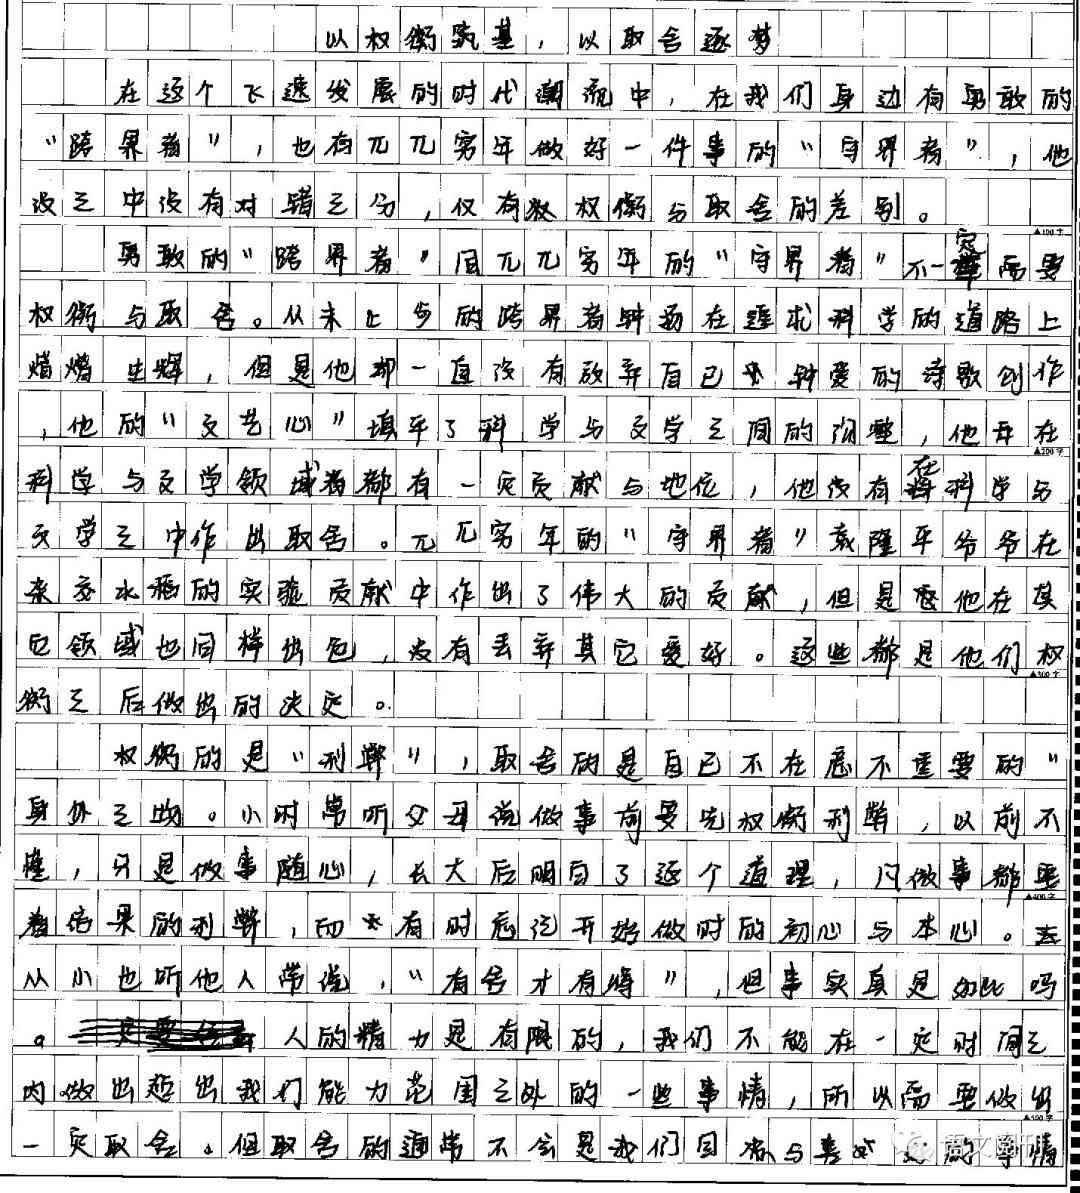 以权衡筑基，以取舍逐梦
在这个飞速发展的时代潮流中，在我们身边有勇敢的
“跨界者”，也有兀兀穷年做好一件事的“守界者”，他
没之中没有对错之分，仅有权衡与取舍的差别。
▲100字
勇敢的“跨界者”同兀兀穷年的“守界者”不一定需要
权衡与取舍。从未止步的跨界者钟扬在追求科学的道路上
熠熠生辉，但是他却一直没有放弃自己钟爱的诗歌创作
，他的“文艺心”填平了科学与文学之间的沟壑，他并在
▲200字
科学与文学领域都有一定贡献与地位，他没有在科学与
文学之中作出取舍。兀兀穷年的“守界者”袁隆平爷爷在
杂交水稻的实验贡献中作出了伟大的贡献，但是他在其
它领域也同样出色，没有丢弃其它爱好。这些都是他们权
▲300字
衡之后做出的决定。
权衡的是“利弊”，取舍的是自己不在意不重要的“
身外之物。小时常听父母说做事前要先权衡利弊，以前不
懂，只是做事随心，长大后明白了这个道理，凡做事都要
▲400字
看结果的利弊，而有时忘记开始做时的初心与本心。
从小也听他人常说，“有舍才有得”，但事实真是如此吗
。人的精力是有限的，我们不能在一定时间之
内做出超出我们能力范围之外的一些事情，所以需要做出
▲500字
一定取舍。但取舍的通常不会是我们同的事情
语文圈刊